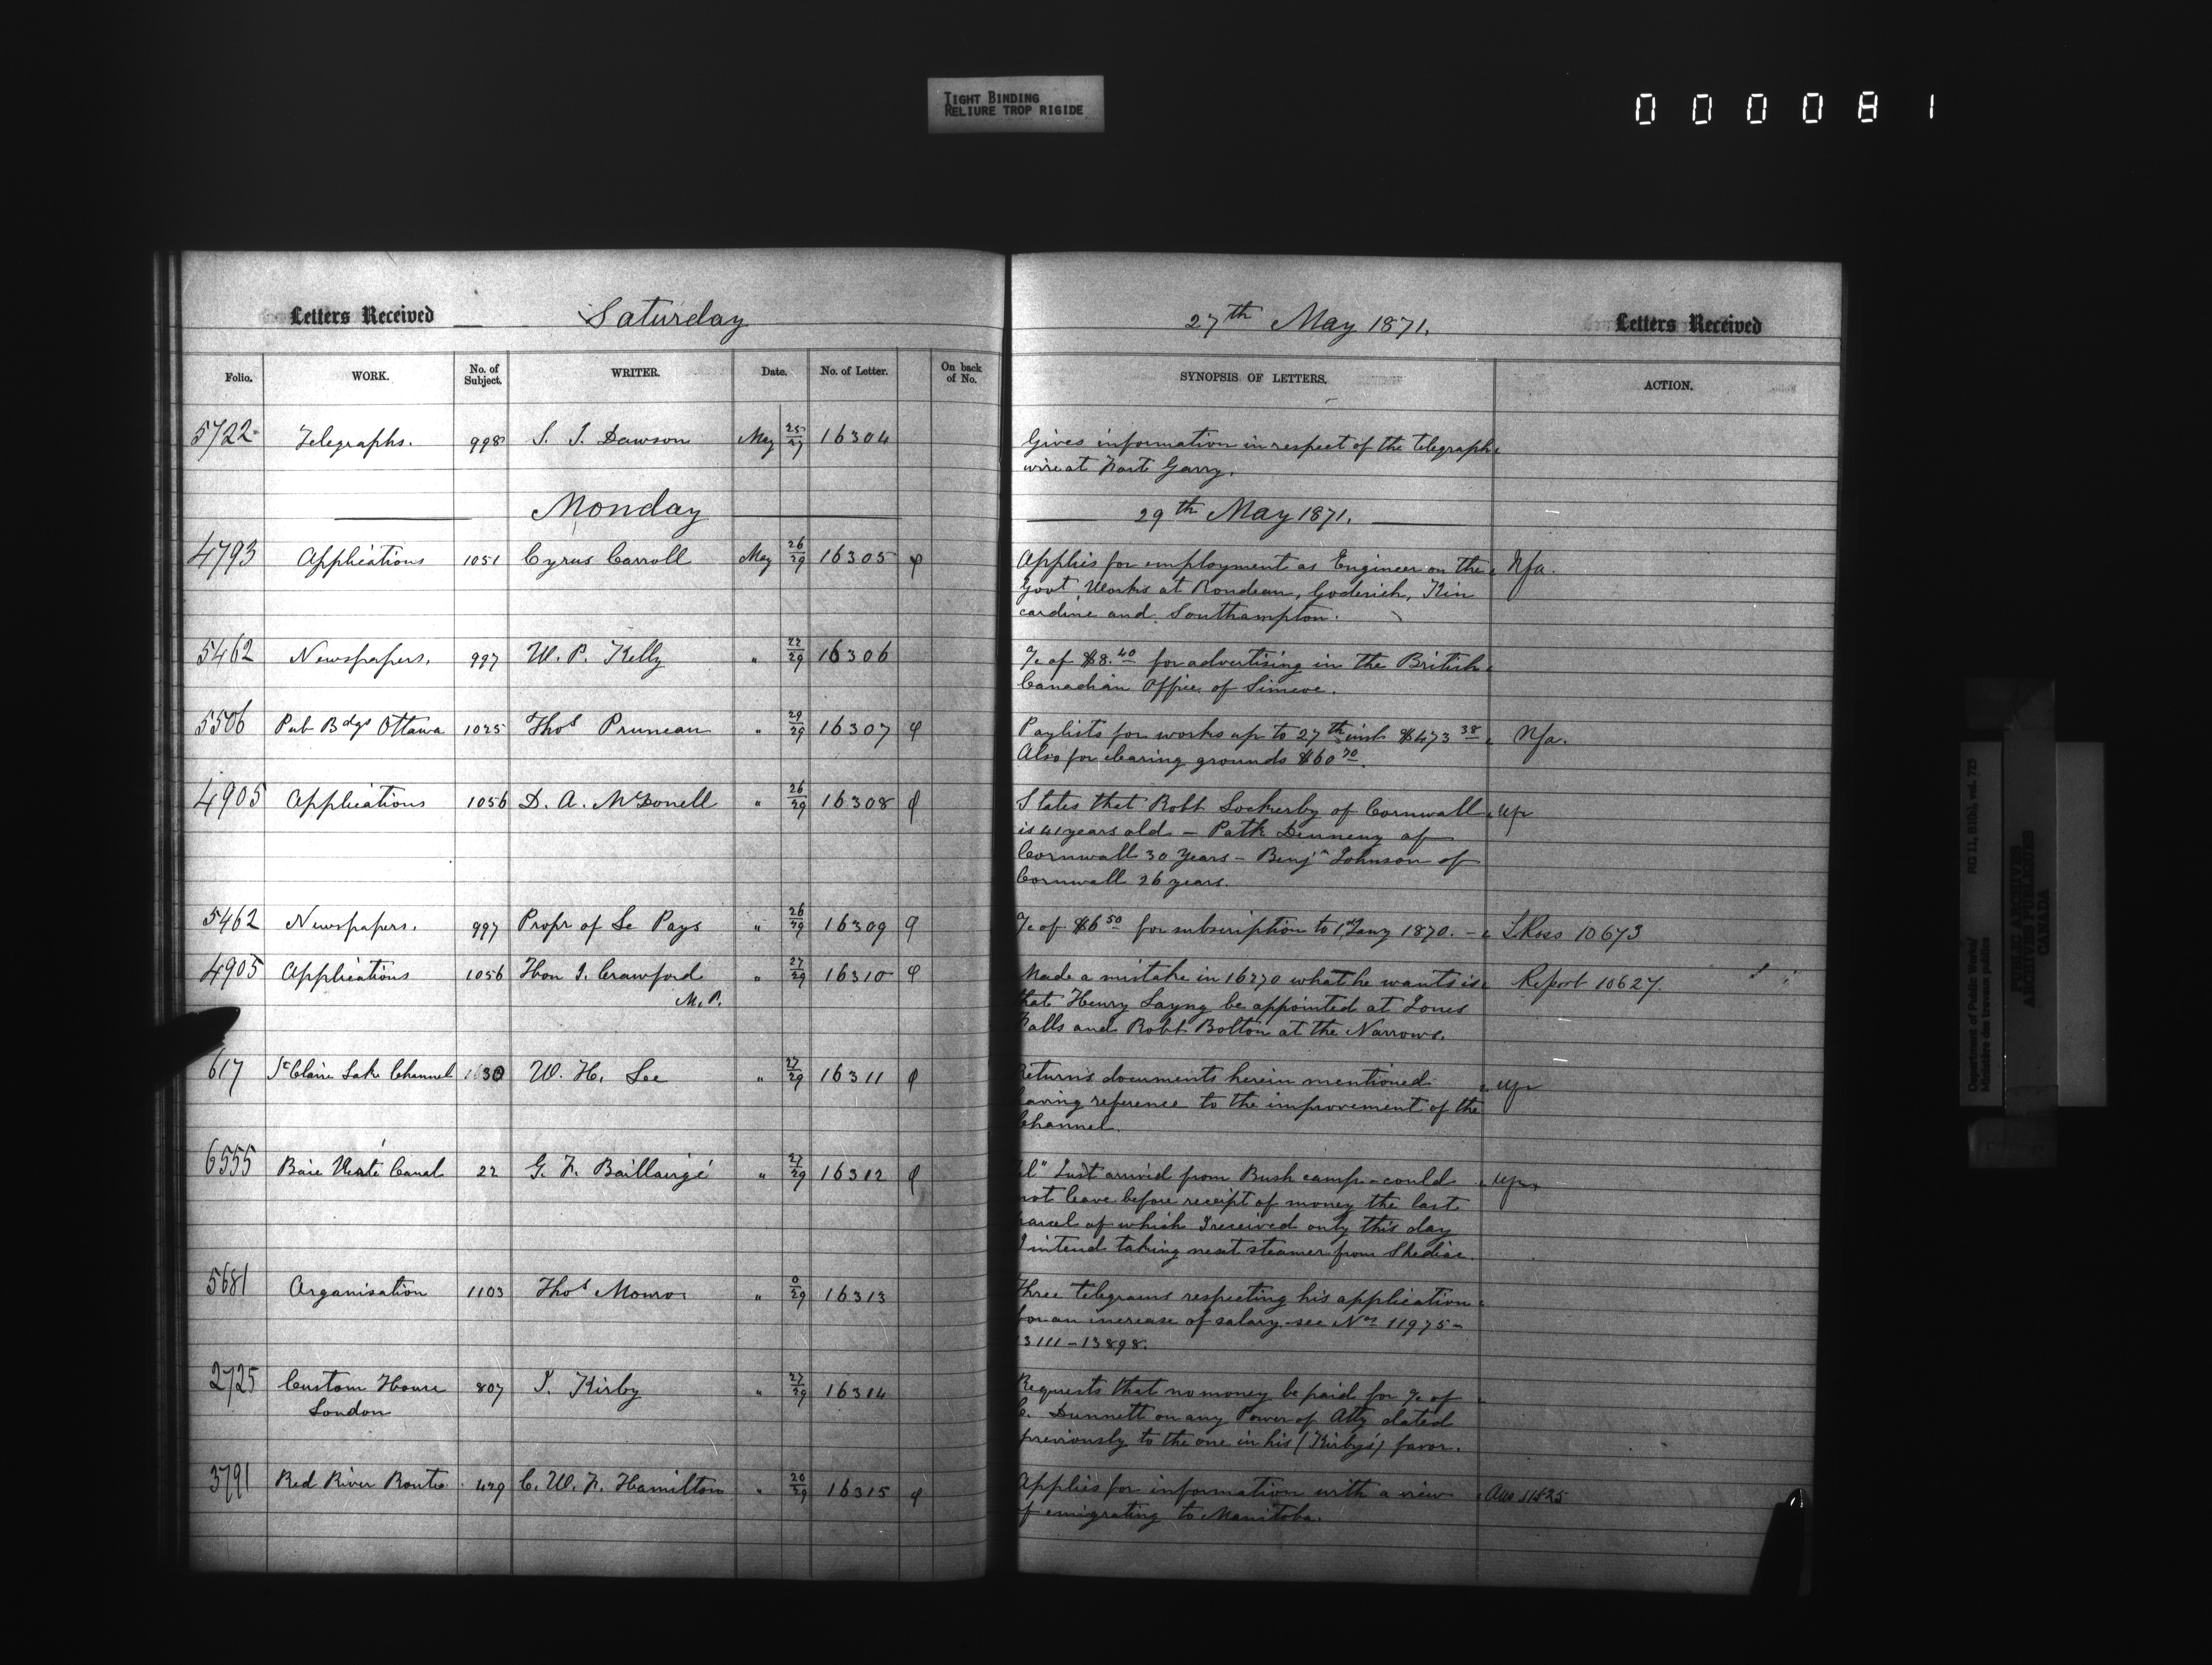 TIGHT BINDING
RELIURE TROP RIGIDE
000081
Letters Received — Saturday
27th May 1871.
Letters Received
Folio. WORK. No. of Subject. WRITER. Date. No. of Letter. On back of No. SYNOPSIS OF LETTERS. ACTION.
5722 Telegraphs. 998 S. J. Dawson May 25/27 16304
Gives information in respect of the telegraph
wire at Fort Garry.
Monday
29th May 1871.
4793 Applications 1051 Cyrus Carroll May 26/29 16305 φ
Applies for employment as Engineer on the Nfa.
Govt Works at Rondeau, Goderich, Kin
cardine and Southampton.
5462 Newspapers. 997 W. P. Kelly " 22/29 16306
a/c of $8.40 for advertising in the British
Canadian Office of Simcoe.
5506 Pub Bdgs Ottawa 1025 Thos Pruneau " 29/29 16307 φ
Paylists for works up to 27th inst $473 38 Nfa.
Also for clearing grounds $60 70.
4905 Applications 1056 D. A. McDonell " 26/29 16308 φ
States that Robt Lockerby of Cornwall up
is 41 years old – Patk Denneny of
Cornwall 30 years – Benjn Johnson of
Cornwall 26 years.
5462 Newspapers. 997 Propr of Le Pays " 26/29 16309 φ
a/c of $6 50 for subscription to 1st Jany 1870. – J. Ross 10673
4905 Applications 1056 Hon J. Crawford " 27/29 16310 φ
M.P.
Made a mistake in 16270 what he wants is Report 10627.
that Henry Layng be appointed at Jones
Falls and Robt Bolton at the Narrows.
617 St Claire Lake Channel 1630 W. H. Lee " 27/29 16311 φ
Returns documents herein mentioned up
having reference to the improvement of the
Channel.
6555 Baie Verte Canal 22 G. F. Baillairgé " 27/29 16312 φ
Tel" Just arrived from Bush camp – could up
not leave before receipt of money the last
parcel of which I received only this day
I intend taking next steamer from Shediac.
5681 Organisation 1103 Thos Monro " 0/29 16313
Three telegrams respecting his application
for an increase of salary – see Nos 11975 –
13111 – 13898.
2725 Custom House 807 J. Kirby " 27/29 16314
London
Requests that no money be paid for a/c of
C. Dunnett on any Power of Atty dated
previously to the one in his (Kirby's) favor.
3791 Red River Route 429 C. W. F. Hamilton " 20/29 16315 φ
Applies for information with a view Ans 11525
of emigrating to Manitoba.
Department of Public Works/
Ministère des travaux publics
RG 11, B1(b), vol. 725
PUBLIC ARCHIVES
ARCHIVES PUBLIQUES
CANADA